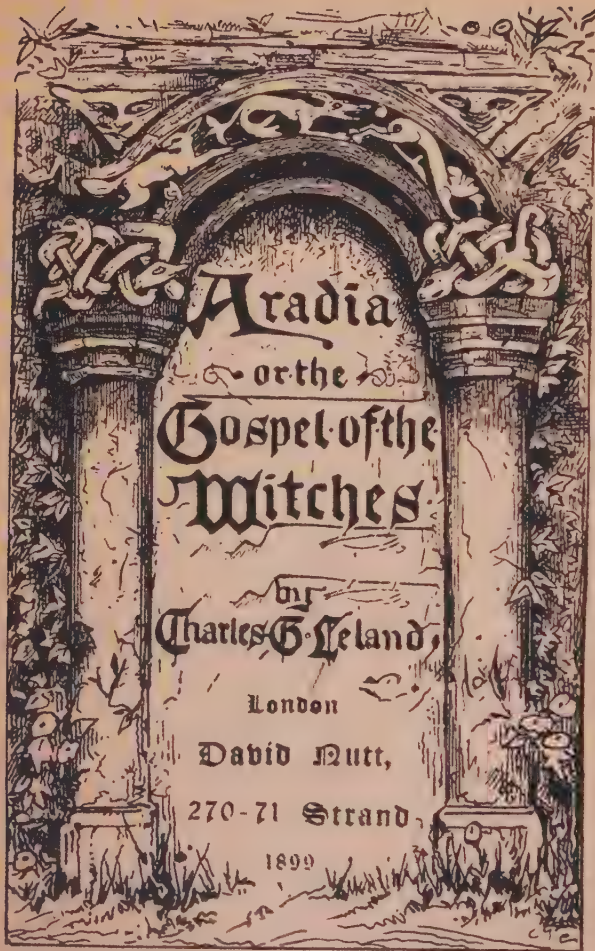 Aradia
or the
Gospel of the
Witches
by
Charles G. Leland,
London
David Nutt,
270-71 Strand
1899